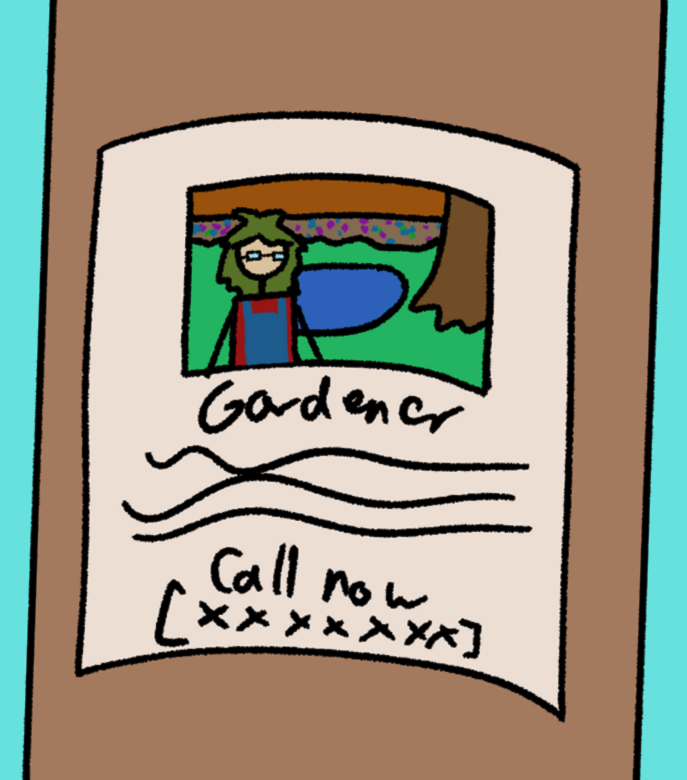 Gardener
Call now
[xxxxxxx]